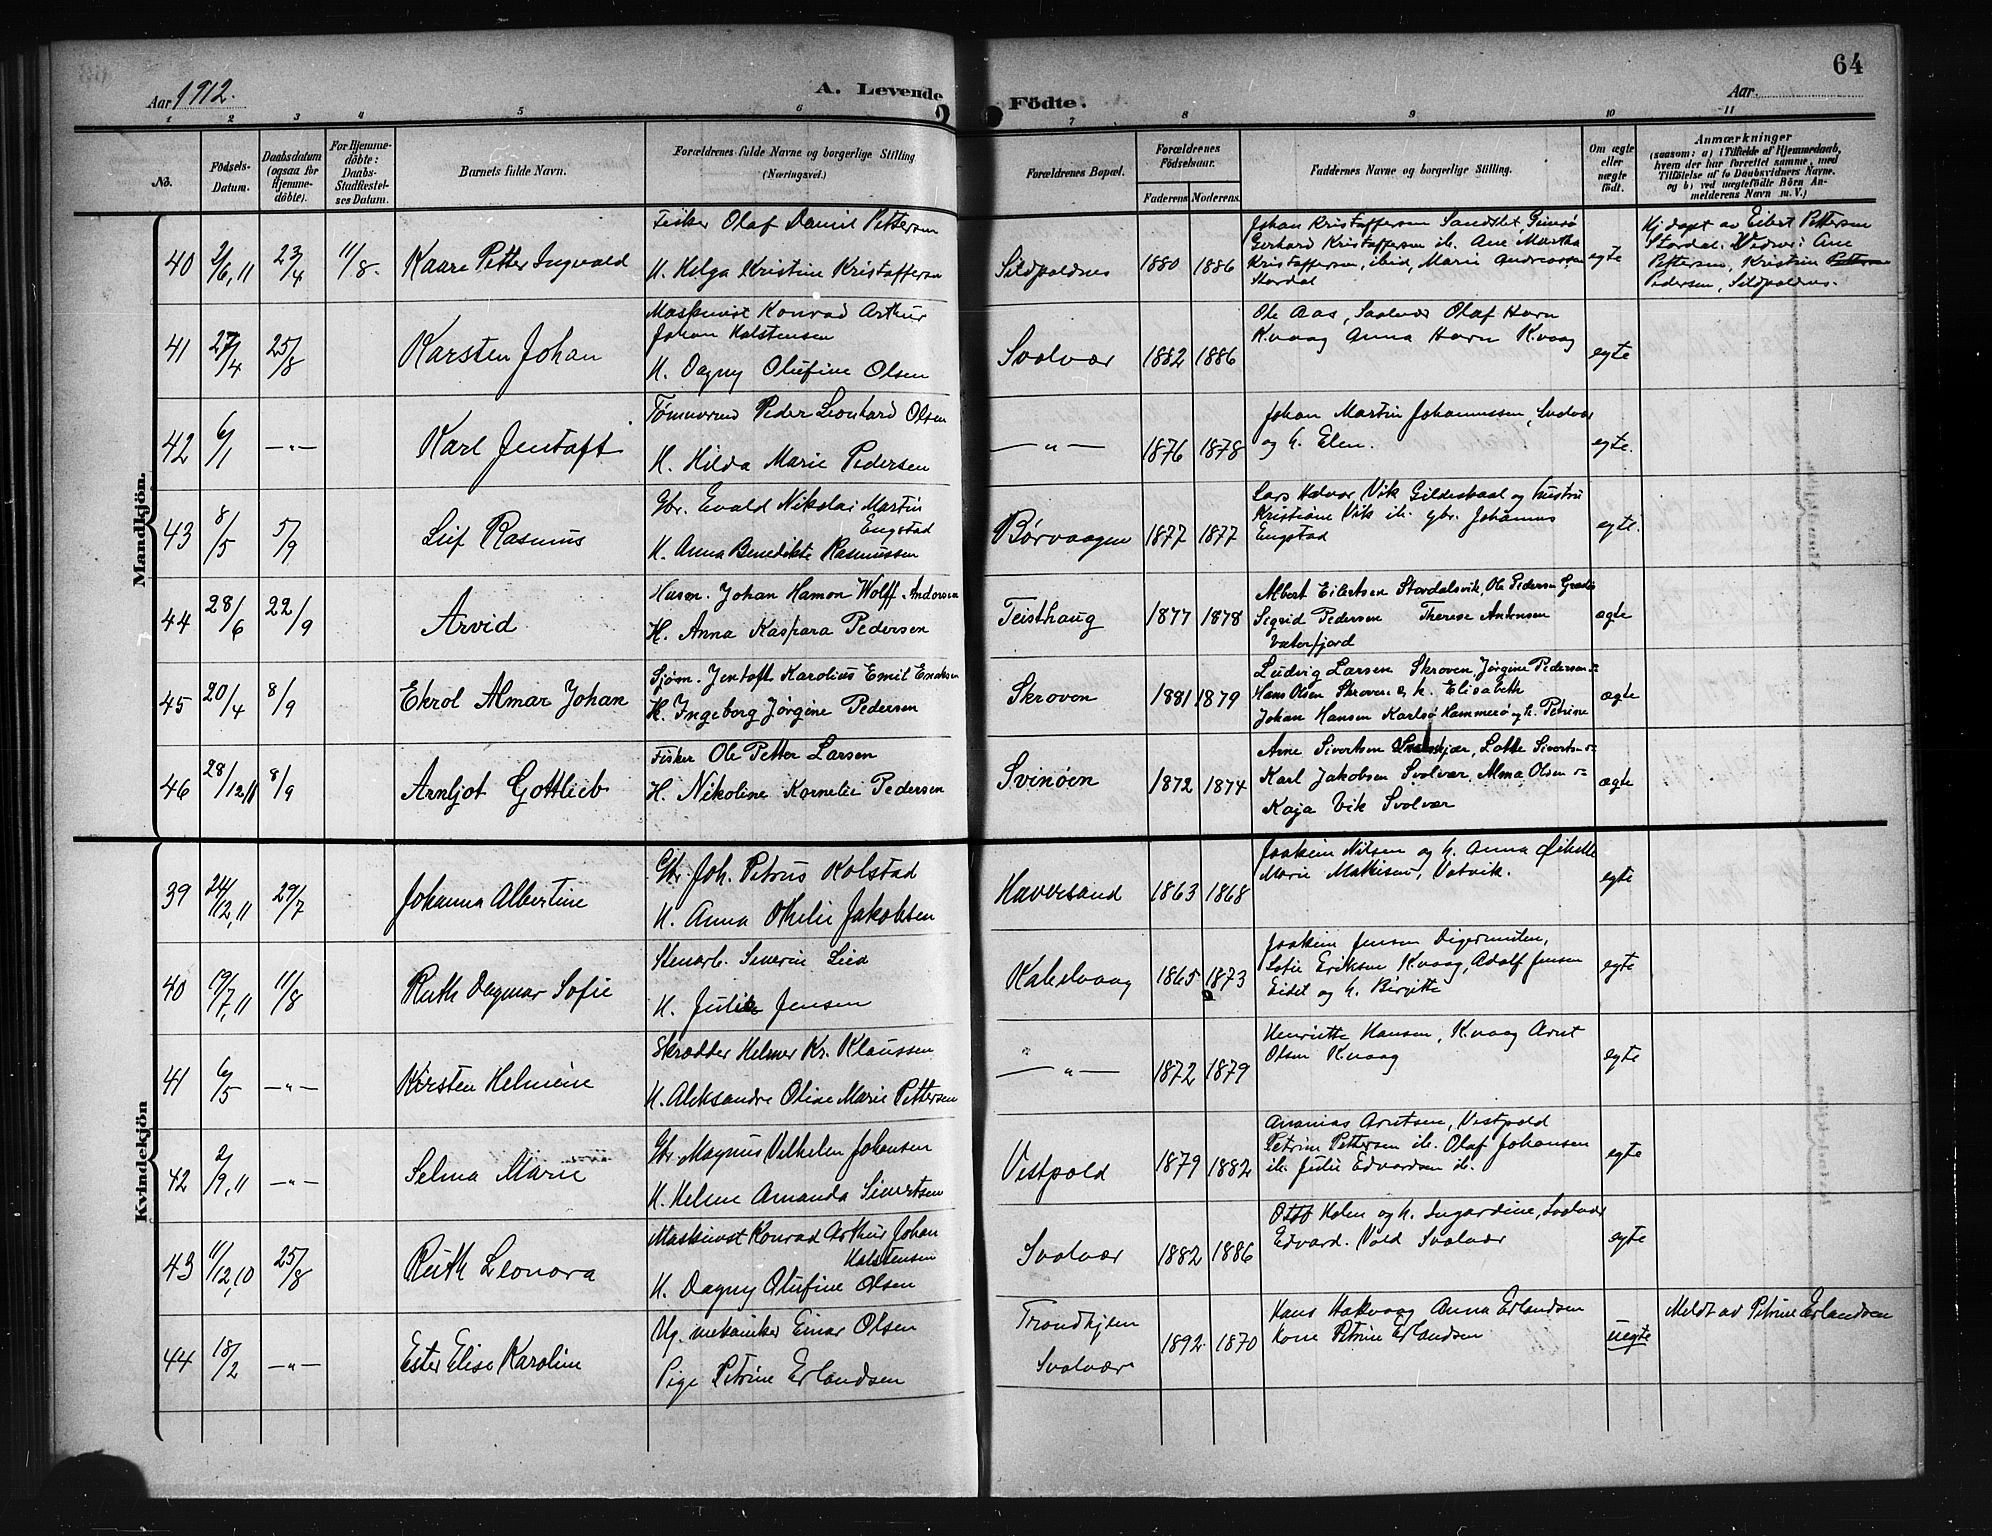 Aar 1912.
A. Levende Födte.
Aar
64
1 2 3 4 5 6 7 8 9 10 11
No.
Födsels-Datum.
Daabsdatum (ogsaa for Hjemmedöbte).
For Hjemmedöbte: Daabs-Stadfestelses Datum.
Barnets fulde Navn.
Forældrenes fulde Navne og borgerlige Stilling (Næringsvei.)
Forældrenes Bopæl.
Forældrenes Födselsaar.
Faderens. Moderens.
Faddernes Navne og borgerlige Stilling.
Om ægte eller uægte födt.
Anmærkninger
(saasom: a) i Tilfælde af Hjemmedaab, hvem der har forrettet samme, med Tilföielse af to Daabsvidners Navne. og b) ved uægtefödte Börn Anmelderens Navn m. V.)
Mandkjön.
40 2/6,11 23/4 11/8. Kaare Petter Ingvald
Fisker Olaf Daniel Pettersen
H. Helga Kristine Kristoffersen
Sildpoldnes 1880 1886
Johan Kristoffersen Sandslet, Gimsø
Gerhard Kristoffersen ib. Ane Martha
Kristoffersen, ibid, Marie Andreassen
Stordal
egte
Hj. døpt av Eibert Pettersen
Stordal. Vidner: Ane
Pettersen, Kristine Pettersen
Pedersen, Sildpoldnes.
41 27/4 25/8 Karsten Johan
Maskinist Konrad Arthur
Johan Holstensen
H. Dagny Olufine Olsen
Svolvær 1882 1886
Ole Aas, Svolvær Olaf Horn
K.vaag Anna Horn K.vaag
egte
42 6/1 —"— Karl Jentoft
Tømmermd Peder Leonhard Olsen
H. Hilda Marie Pedersen
—"— 1876 1878
Johan Martin Johannessen, Svolvær
og h. Elen.
egte.
43 8/5 5/9 Leif Rasmus
Gbr. Evald Nikolai Martin
Engstad
H. Anna Benedikte Rasmussen
Børvaagen 1877 1877
Lars Halvor Vik Gildeskaal og hustru
Kristiane Vik ib. gbr. Johannes
Engstad
egte.
44 28/6 22/9 Arvid
Husm. Johan Hamon Wolff Andorsen
H. Anna Kaspara Pedersen
Teisthaug 1877 1878
Albert Eilertsen Stordalsvik, Ole Pedersen
Sigrid Pedersen Therese Antonsen
Vaterfjord
ægte
45 20/4 8/9 Ekrol Almar Johan
Sjøm. Jentoft Karolius Emil Eriksen
H. Ingeborg Jørgine Pedersen
Skroven 1881 1879
Ludvig Larsen Skroven, Jørgine Pedersen
Hans Olsen Skroven og h. Elisabeth
Johan Hansen Karlsø Hammerø og h. Petrine
ægte
46 28/12,11 8/9 Arnljot Gottlieb
Fisker Ole Petter Larsen
H. Nikoline Kornelie Pedersen
Svinøen 1872 1874
Arne Sivertsen, Lotte Sivertsen
Karl Jakobsen Svolvær, Alma Olsen
Kaja Vik Svolvær
ægte
Kvindekjön
39 24/12,11 29/7 Johanna Albertine
Gbr. Joh. Petrus Kolstad
H. Anna Othelie Jakobsen
Haversand 1863 1868
Joakim Nilsen og h. Anna
Marie Mathisen, Vatvik.
egte
40 19/7,11 11/8 Ruth Dagmar Sofie
Stenarb. Severin Lied
H. Julie Jensen
Kabelvaag 1865 1873
Joakim Jensen Digermulen,
Sofie Eriksen K.vaag, Adolf Jensen
Eidet og h. Birgitte
egte
41 6/5 —"— Kirsten Helmine
Skrædder Helmer Kr. Klaussen
H. Aleksandra Oline Marie Pettersen
—"— 1872 1879
Henriette Hansen, K.vaag Arnt
Olsen K.vaag
egte
42 2/9,11 —"— Selma Marie
Gbr Magnus Vilhelm Johansen
H. Helene Amanda Sivertsen
Vestpold 1879 1882
Ananias Arntsen, Vestpold
Petrine Pettersen ib. Olaf Johansen
ib. Julie Edvardsen ib.
egte
43 11/12,10 25/8 Ruth Leonora
Maskinist Konrad Arthur Johan
Holstensen
H. Dagny Olufine Olsen
Svolvær 1882 1886
Otto Holm og h. Ingardine, Svolvær
Edvard. Vold Svolvær
egte
44 18/2 —"— Ester Elise Karoline
Ug. mekaniker Einar Olsen
Pige Petrine Erlandsen
Trondhjem
Svolvær
1892 1870
Hans Hakvaag Anna Erlandsen
kone Petrine Erlandsen
uegte
Meldt av Petrine Erlandsen